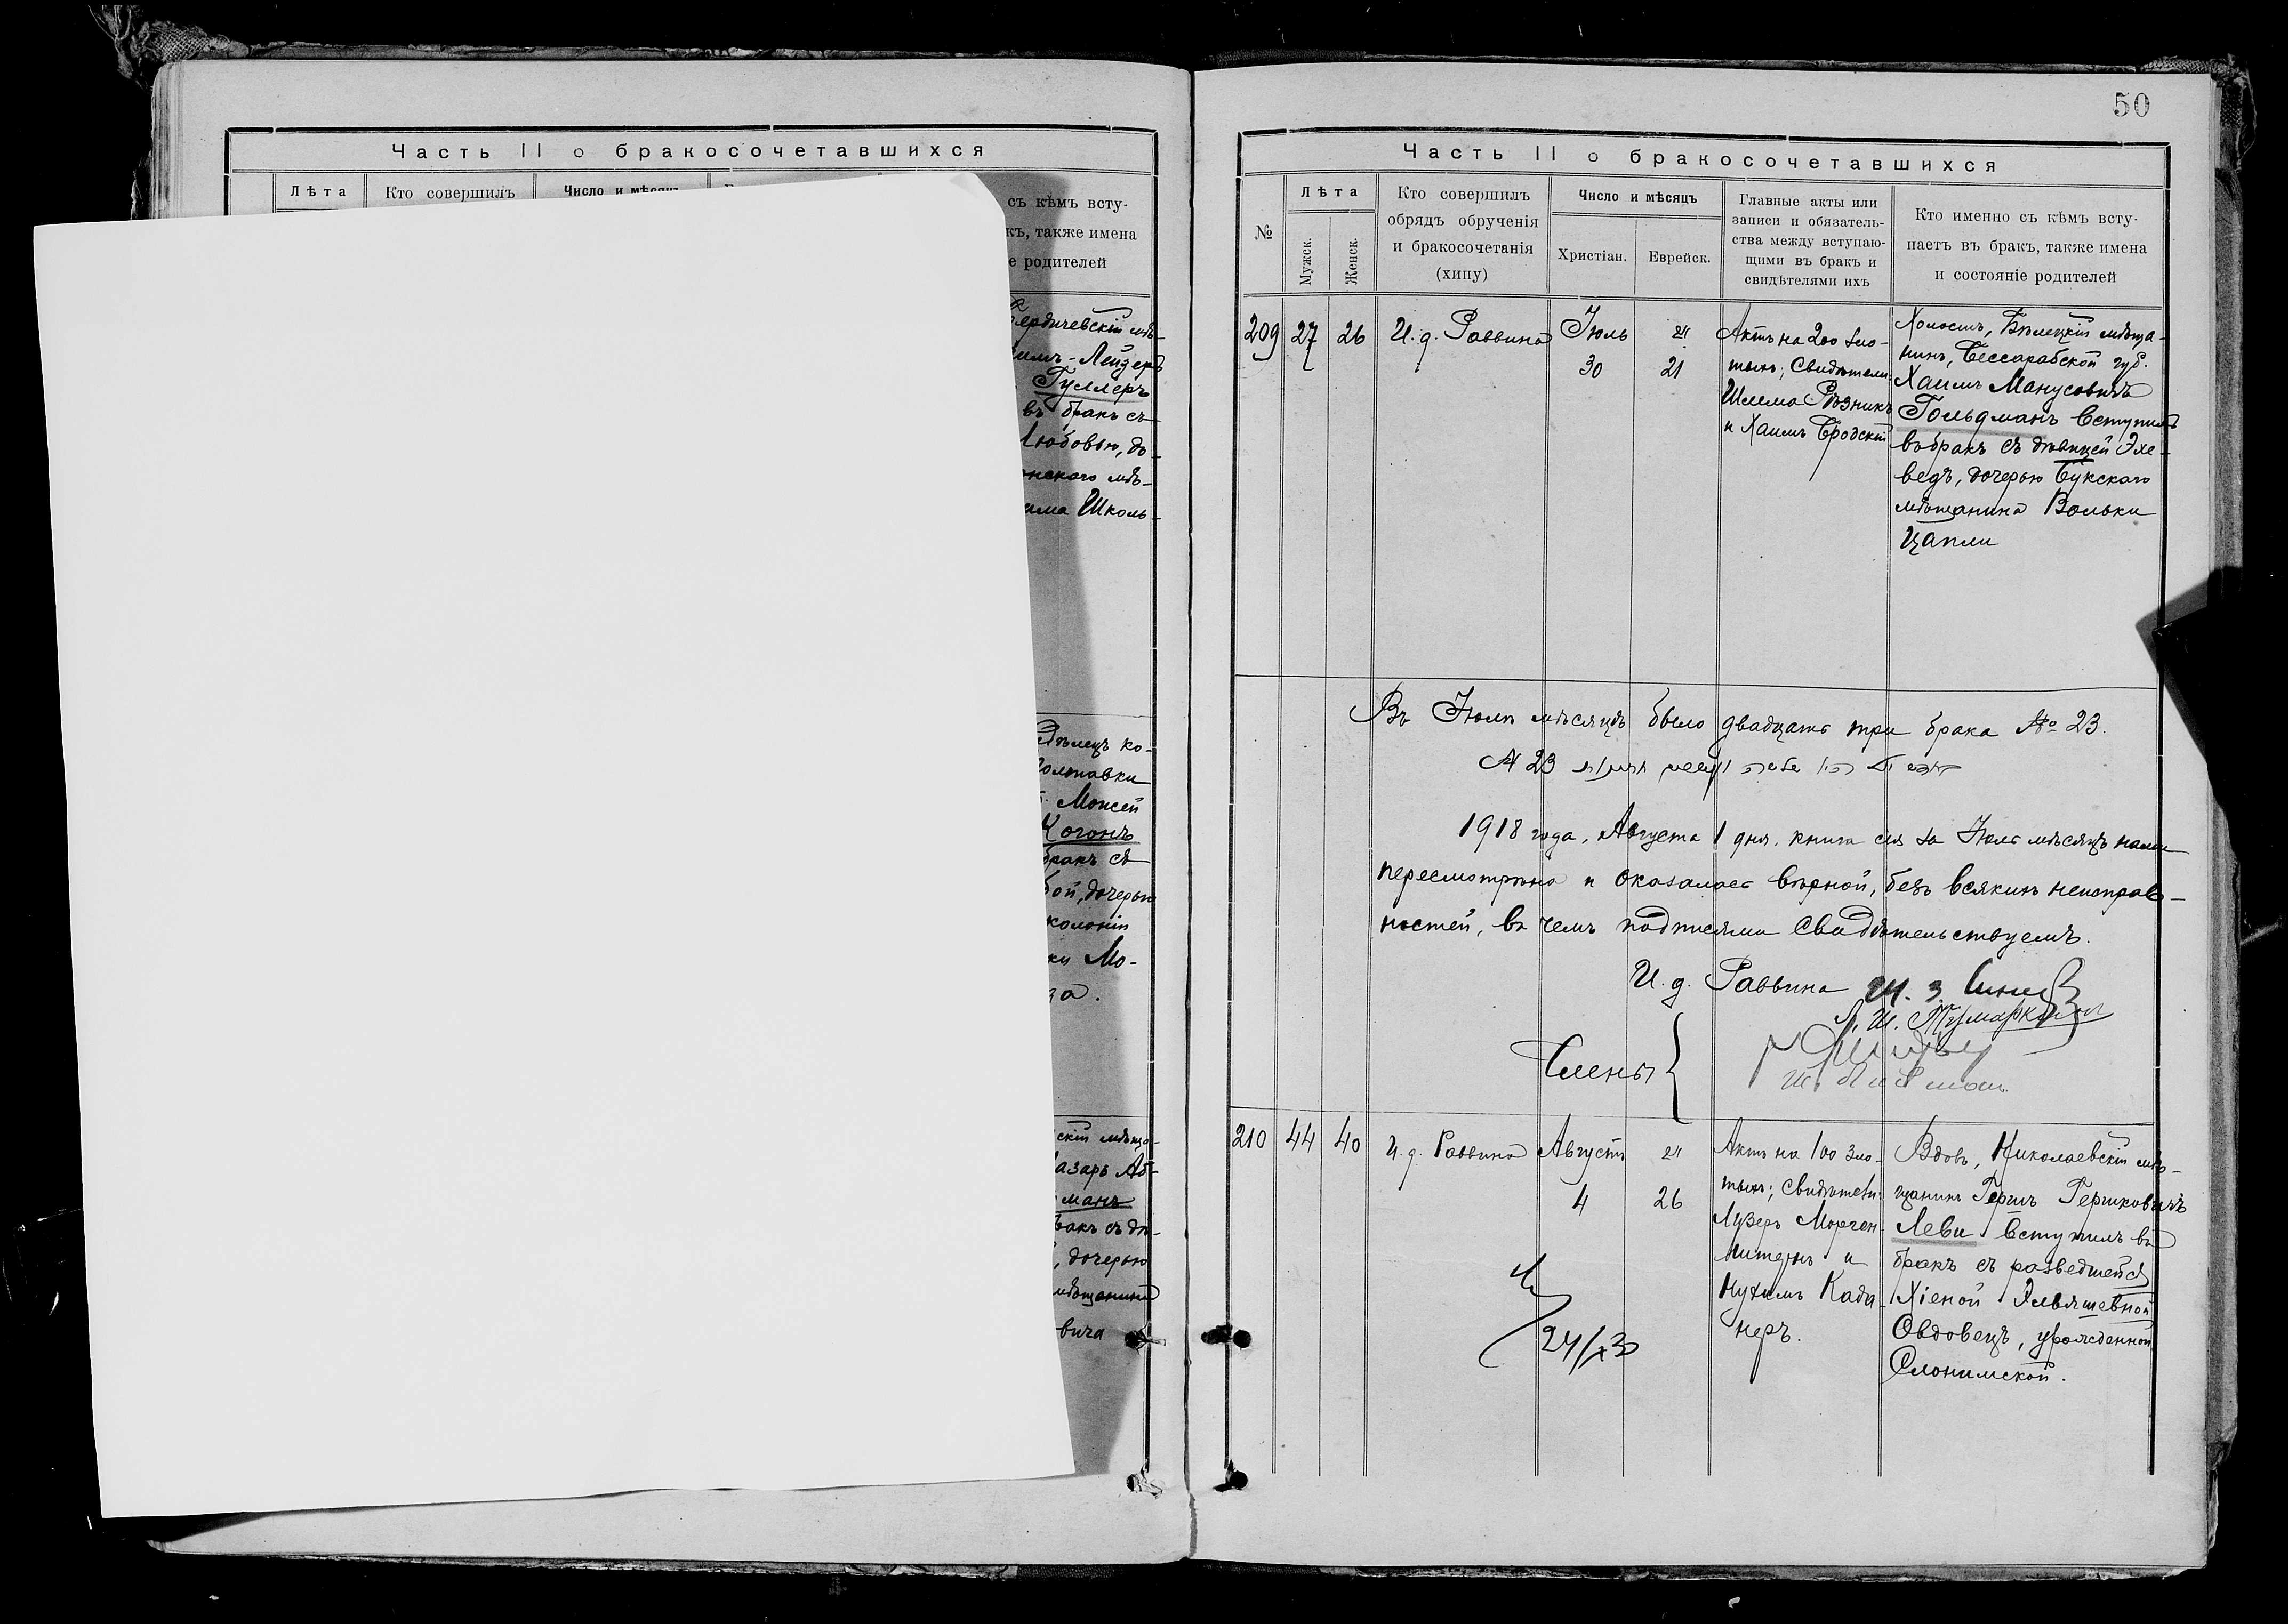 Часть II о бракосочетавшихся
Лѣта
Кто совершилъ
Число и мѣсяцъ
съ кѣмъ всту-
къ, также имена
е родителей
ердичевскій мѣ-
имъ-Лейзеръ
Гуллеръ
въ бракъ съ
Любовью, до-
нскаго мѣ-
има Школь-
ко-
олтавки
Моисей
Когонъ
бракъ съ
бой, дочерью
колоніи
ки Мо-
за.
скій мѣща-
Лазарь Аб-
манъ
бракъ съ дѣ-
, дочерью
мѣщанина
вича
50
Часть II о бракосочетавшихся
№
Лѣта
Мужск.
Женск.
Кто совершилъ
обрядъ обрученія
и бракосочетанія
(хипу)
Число и мѣсяцъ
Христіан.
Еврейск.
Главные акты или
записи и обязатель-
ства между вступаю-
щими въ бракъ и
свидѣтелями ихъ
Кто именно съ кѣмъ всту-
паетъ въ бракъ, также имена
и состояніе родителей
209
27
26
И. д. Раввина
Іюль
30
21
Актъ на 200 зло-
тыхъ; Свидѣтели:
Шлема Рѣзникъ
и Хаимъ Бродскій
Холостъ, Бѣлецкій мѣща-
нинъ, Бессарабской губ.
Хаимъ Манусовичъ
Гольдманъ вступилъ
въ бракъ съ дѣвицей Эхе-
ведъ, дочерью Букскаго
мѣщанина Вольки
Цапли
Въ Іюлѣ мѣсяцѣ было двадцать три брака № 23.
№ 23
1918 года, Августа 1 дня, книга сія за Іюль мѣсяцъ нами
пересмотрѣна и оказалась вѣрной, безъ всякихъ неисправ-
ностей, въ чемъ подписями свидѣтельствуемъ.
И. д. Раввина
Л. Ш. Тумаркинъ
Члены
210
44
40
И. д. Раввина
Августъ
4
26
Актъ на 100 зло-
тыхъ; свидѣтели:
Лузеръ Морген-
штернъ и
Нухимъ Када-
неръ.
Вдовъ, Николаевскій мѣ-
щанинъ Гершъ Гершковичъ
Леви вступилъ въ
бракъ съ разведшейся
Хіеной Эльяшевной
Овдовецъ, урожденной
Слонимской.